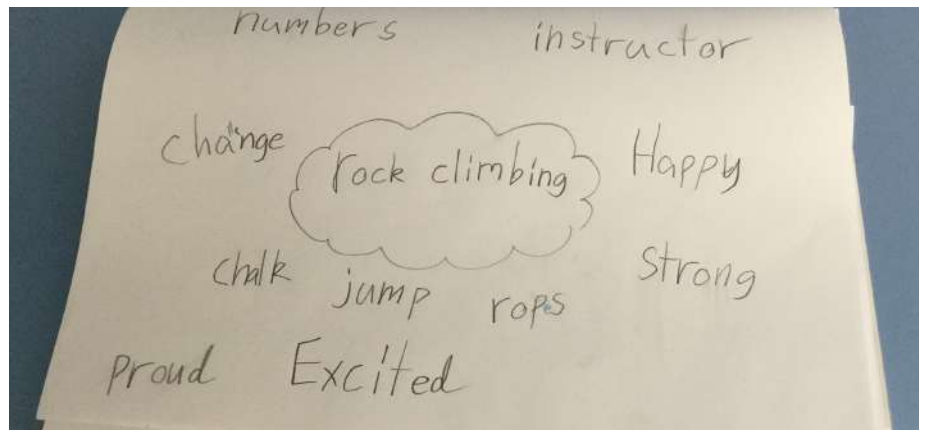 numbers instructor
change rock climbing Happy
chalk jump ropes strong
proud Excited